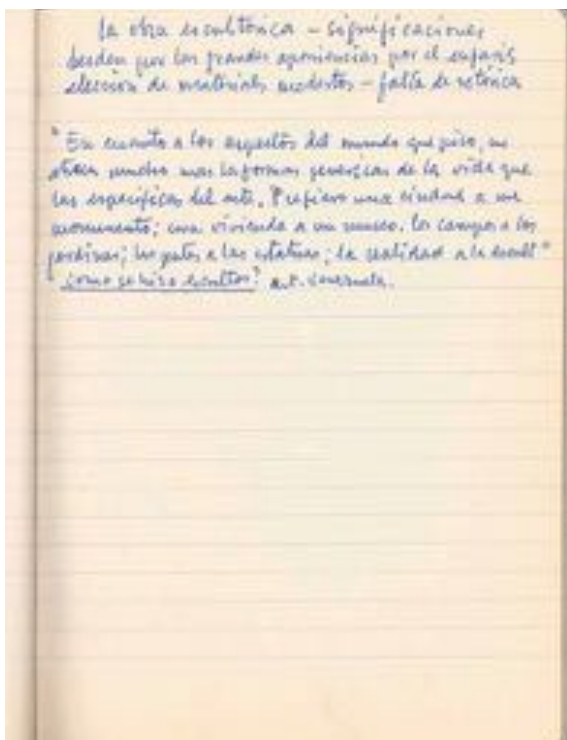 la obra escultórica – significaciones
desden por las grandes apariencias por el enfasis
elección de materiales modestos – falta de retórica
" En cuanto a los aspectos del mundo que piso, me
atraen mucho mas las formas genericas de la vida que
las especificas del arte. Prefiero una ciudad a un
monumento; una vivienda a un museo. los campos a los
jardines; las gentes a las estatuas; la realidad a la
" como se hizo escultor? a.F.